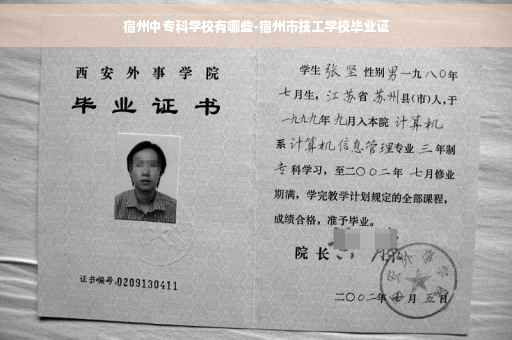 宿州中专科学校有哪些-宿州市技工学校毕业证
西安外事学院
毕业证书
证书编号:0209130411
学生 张坚 性别 男 一九八〇年
七月生,江苏省 苏州县(市)人,于
一九九九年 九月入本院 计算机
系 计算机信息管理专业 三 年制
专科学习,至二〇〇二年 七月修业
期满,学完教学计划规定的全部课程,
成绩合格,准予毕业。
院长
二〇〇二年 七月 五日